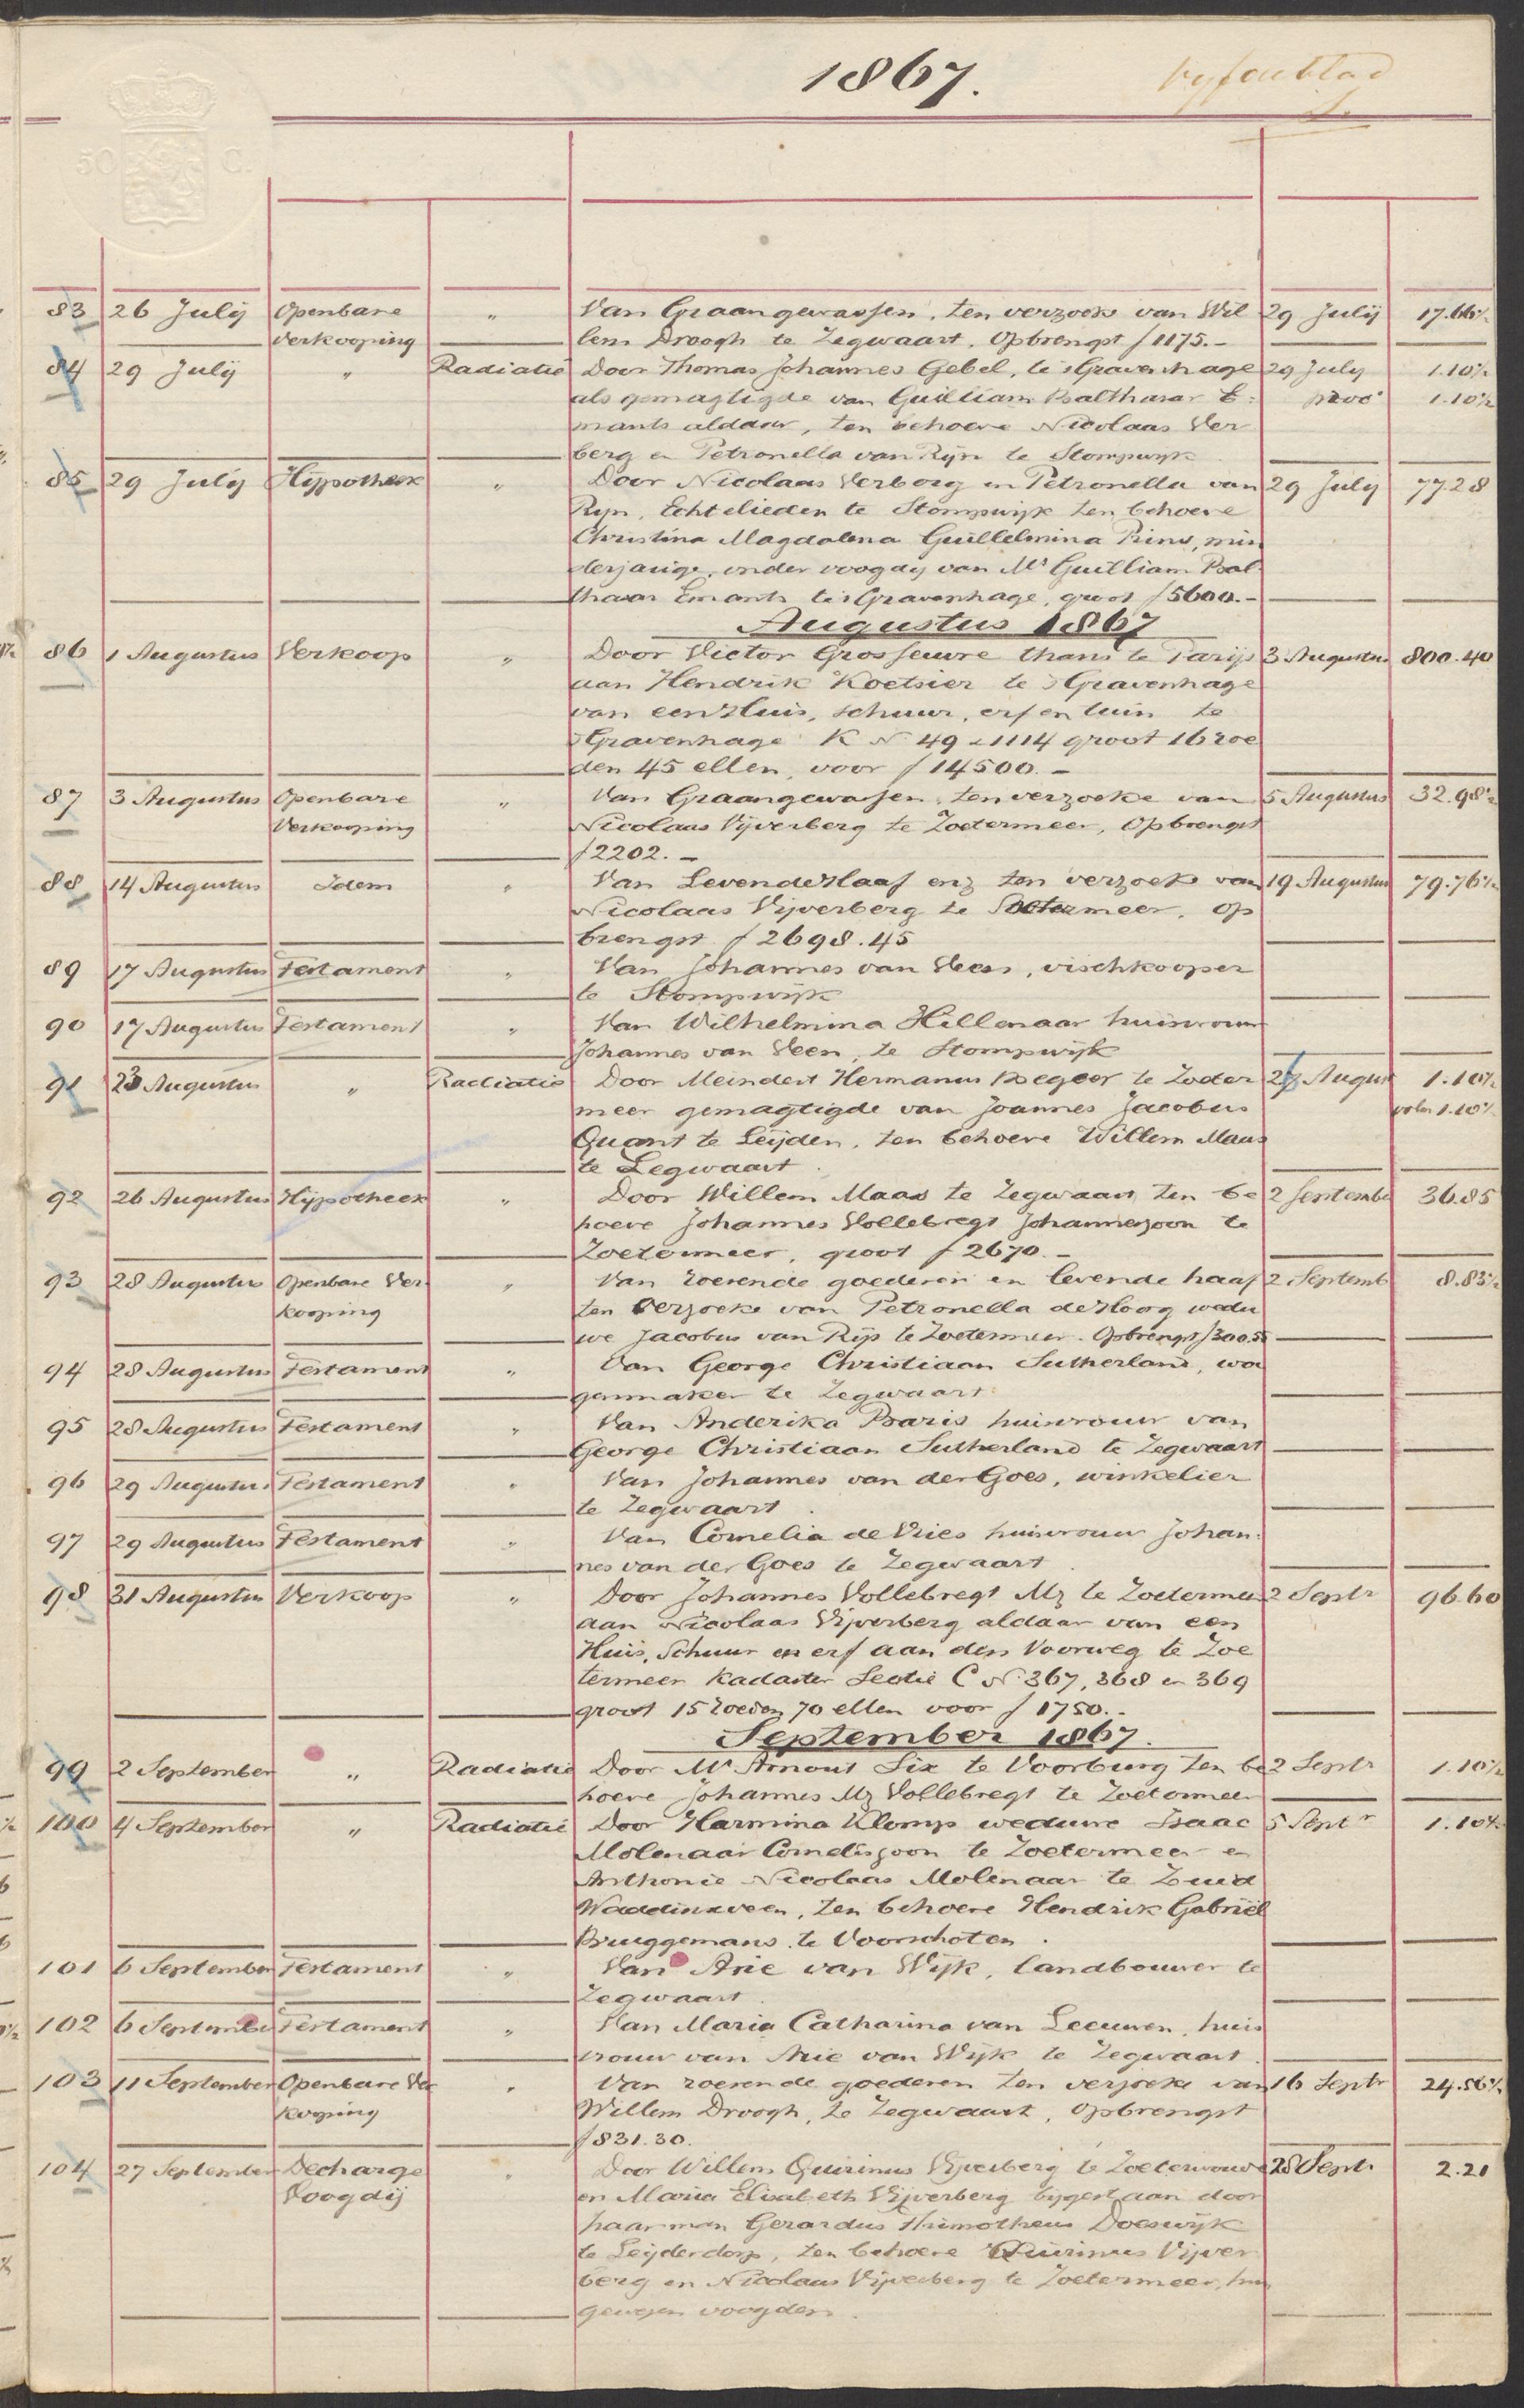 1867.
vijfde blad
50 C.
83 26 July Openbare " Van Graangewassen, ten verzoek van Wil 29 Julij 17.66½
verkooping lem Droogh te Zegwaart. Opbrengst f 1175.-
84 29 July " Radiatie Door Thomas Johannes Gebel, te 'sGravenhage 29 July 1.10½
als gemagtigde van Guilliam Balthasar E: 1.10½
mants aldaar, ten behoeve Nicolaas Ver
berg en Petronella van Rijn te Stompwijk
85 29 July Hypotheek " Door Nicolaas Verberg en Petronella van 29 July 77.28
Rijn, Echtelieden te Stompwijk ten behoeve
Christina Magdalena Guillelmina Prins, min
derjarige, onder voogdij van Mr Guilliam Bal
thasar Emants te 'sGravenhage, groot f 5600.-
Augustus 1867
86 1 Augustus Verkoop " Door Victor Grosseuvre thans te Parijs 3 Augustus 800.40
aan Hendrik Koetsier te 'sGravenhage
van een Huis, schuur, erf en tuin te
'sGravenhage K No 49 1114 groot 16 roe
den 45 ellen, voor f 14500.-
87 3 Augustus Openbare " Van Graangewassen, ten verzoeke van 5 Augustus 32.98½
Verkooping Nicolaas Vijverberg te Zoetermeer, Opbrengst
f 2202.-
88 14 Augustus Idem " Van Levende Haaf enz ten verzoek van 19 Augustus 79.76½
Nicolaas Vijverberg te Zoetermeer, op
brengst f 2698.45
89 17 Augustus Testament " Van Johannes van Veen, vischkooper
te Stompwijk
90 17 Augustus Testament " Van Wilhelmina Hillenaar huisvrouw
Johannes van Veen, te Stompwijk
91 23 Augustus " Radiatie Door Meindert Hermanus Begeer te Zoeter 27 August 1.10½
meer gemagtigde van Joannes Jacobus 1.10½
Quant te Leijden, ten behoeve Willem Maas
te Zegwaart.
92 26 Augustus Hypotheek " Door Willem Maas te Zegwaart, ten be 2 Septembe 36.85
hoeve Johannes Vollebregt Johanneszoon te
Zoetermeer, groot f 2670.-
93 28 Augustus Openbare Ver " Van roerende goederen en levende haaf 2 Septemb 8.83½
kooping ten verzoeke van Petronella de Hoog wedu
we Jacobus van Rijs te Zoetermeer. Opbrengst f 300.55
94 28 Augustus Testament " Van George Christiaan Sutherland, wa
genmaker te Zegwaart
95 28 Augustus Testament " Van Anderika Baris huisvrouw van
George Christiaan Sutherland te Zegwaart
96 29 Augustus Testament " Van Johannes van der Goes, winkelier
te Zegwaart.
97 29 Augustus Testament " Van Cornelia de Vries huisvrouw Johan:
nes van der Goes te Zegwaart.
98 31 Augustus Verkoop " Door Johannes Vollebregt Mz te Zoetermeer 2 Septr 96.60
aan Nicolaas Vijverberg aldaar van een
Huis, Schuur en erf aan den Voorweg te Zoe
termeer Kadaster Sectie C No 367, 368 en 369
groot 15 roeden 70 ellen voor f 1750.-
September 1867.
99 2 September " Radiatie Door Mr Arnout Six te Voorburg ten be 2 Septr 1.10½
hoeve Johannes Mz Vollebregt te Zoetermeer
100 4 September " Radiatie Door Harmina Klomp weduwe Isaac 5 Septr 1.10½
Molenaar Corneliszoon te Zoetermeer en
Anthonie Nicolaas Molenaar te Zuid
Waddinxveen, ten behoeve Hendrik Gabriël
Bruggemans te Voorschoten.
101 6 September Testament " Van Arie van Wijk, landbouwer te
Zegwaart.
102 6 September Testament " Van Maria Catharina van Leeuwen, huis
vrouw van Arie van Wijk te Zegwaart.
103 11 September Openbare Ver " Van roerende goederen ten verzoeke van 16 Septr 24.56½
kooping Willem Droogh, te Zegwaart, Opbrengst
f 831.30.
104 27 September Decharge " Door Willem Quirinus Vijverberg te Zoeterwoude 28 Septr 2.21
Voogdij en Maria Elisabeth Vijverberg bijgestaan door
haar man Gerardus Thimotheus Doeswijk
te Leijderdorp, ten behoeve Quirinus Vijver
berg en Nicolaas Vijverberg te Zoetermeer, hun
gewezen voogden.